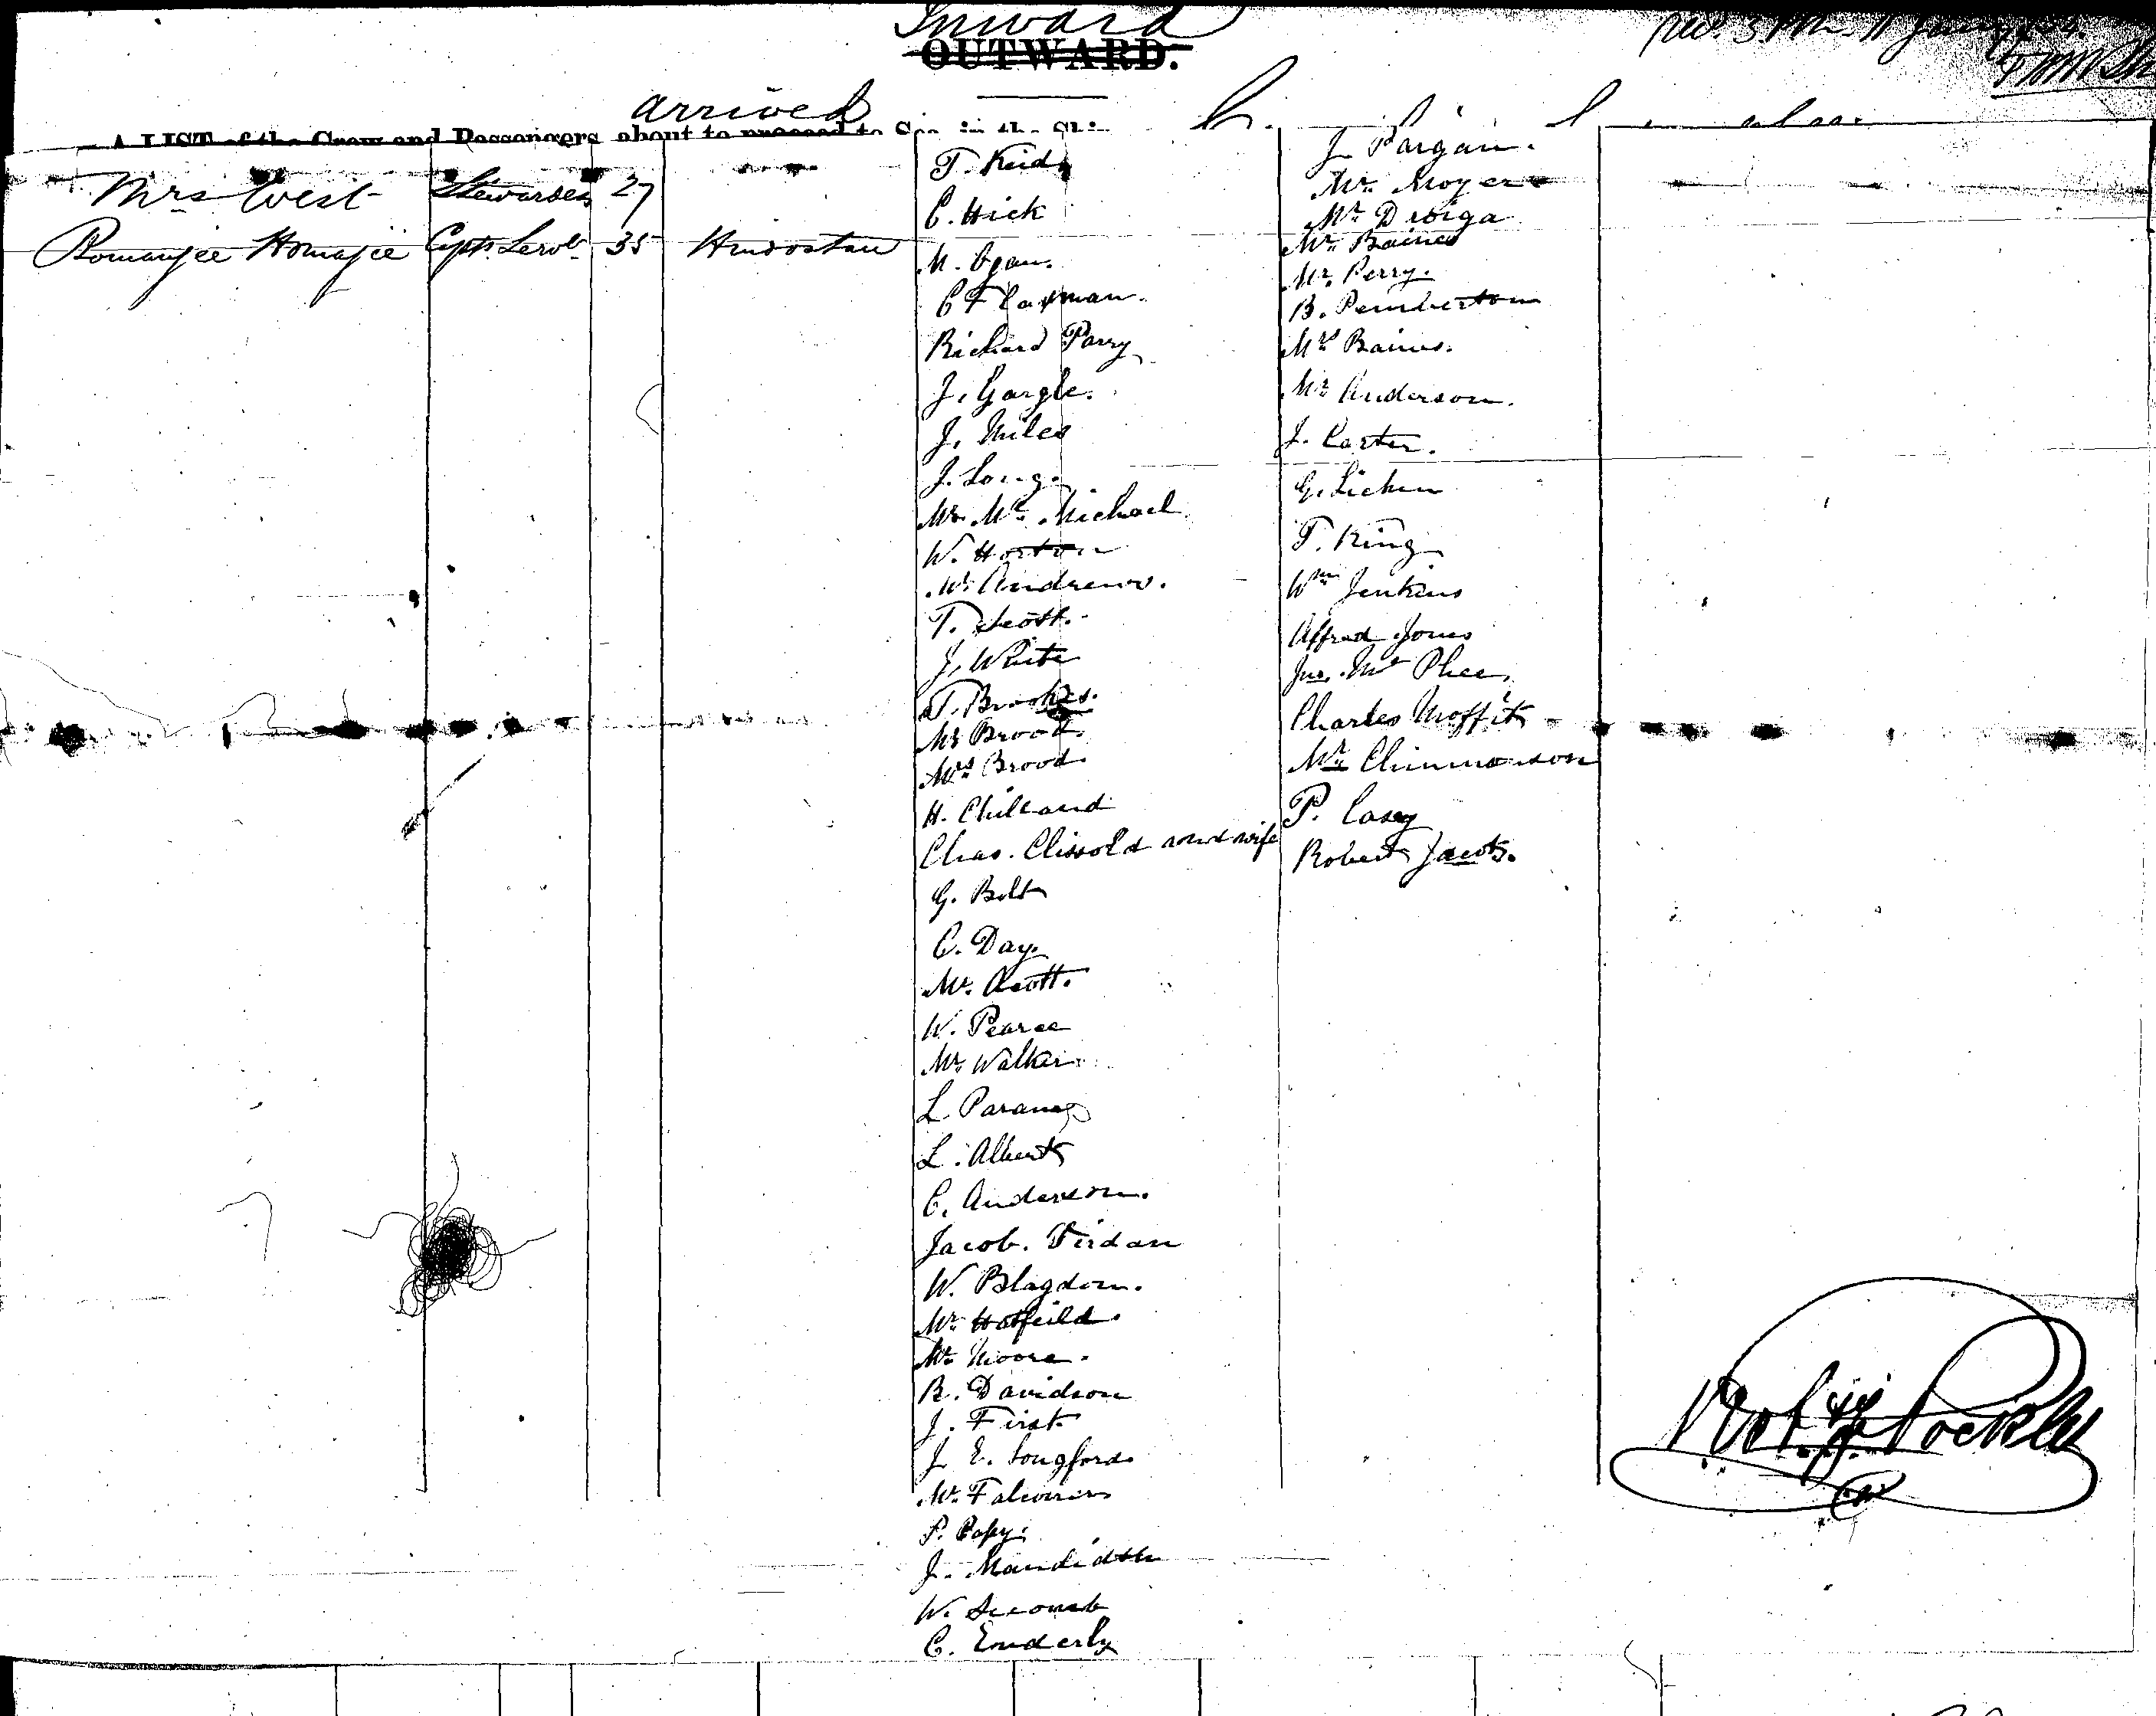 Inward
OUTWARD.
arrived
A LIST of the Crew and Passengers about to proceed to Sea in the Ship
Mrs West Stewardess 27
Homajee Capts. Servt 35 Hindostan
T. Reid
C. Hick
M. Egan.
C Flaxman.
Richard Parry
J. Gargle.
J. Miles
J. Long.
Mr. Mc. Michael
W. Horton
Mr Andrews.
T. Scott.
J. White
T. Brookes.
Mr Brood
Mrs Brood.
H. Chilcand
Chas. Clissold and wife
G. Bolt
C. Day.
Mr. Acott.
W. Pearce
Mr Walker
L.
L. Albert
C. Anderson.
Jacob. Virdan
W. Blagdon.
Mr. Hatfeild.
Mr. Moore.
R. Davidson
J. First
J. E. Longford.
Mr.
P. Copy.
J.
W. Secomb
C. Enderly
J. Pargan.
Mr. Moyer
Mr
Mr. Baines
Mr. Perry.
B. Pemberton
Mrs Baines.
Mr Anderson.
J. Carter.
G. Lichen
T. King
Wm Jenkins
Alfred Jones
Jno. Mc Phee.
Charles Moffit
Mr
P. Casey
Robert Jacobs.